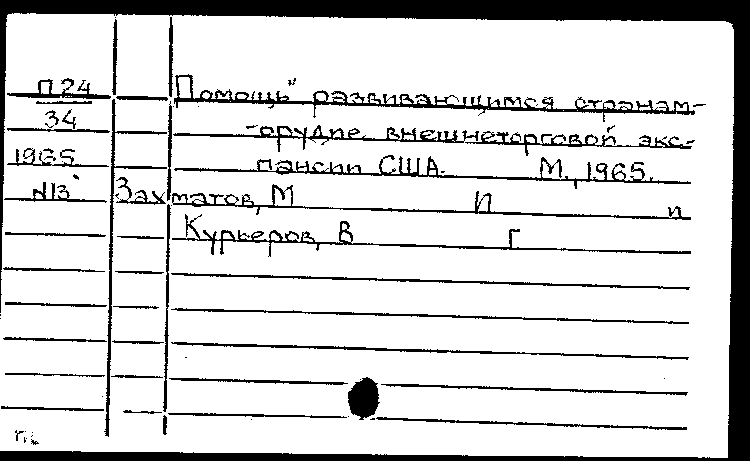 П24 Помощь" развивающимся странам-
34 -орудие внешнеторговой экс-
1965 пансии США. М., 1965.
N13 Захматов, М И и
Курьеров, В Г